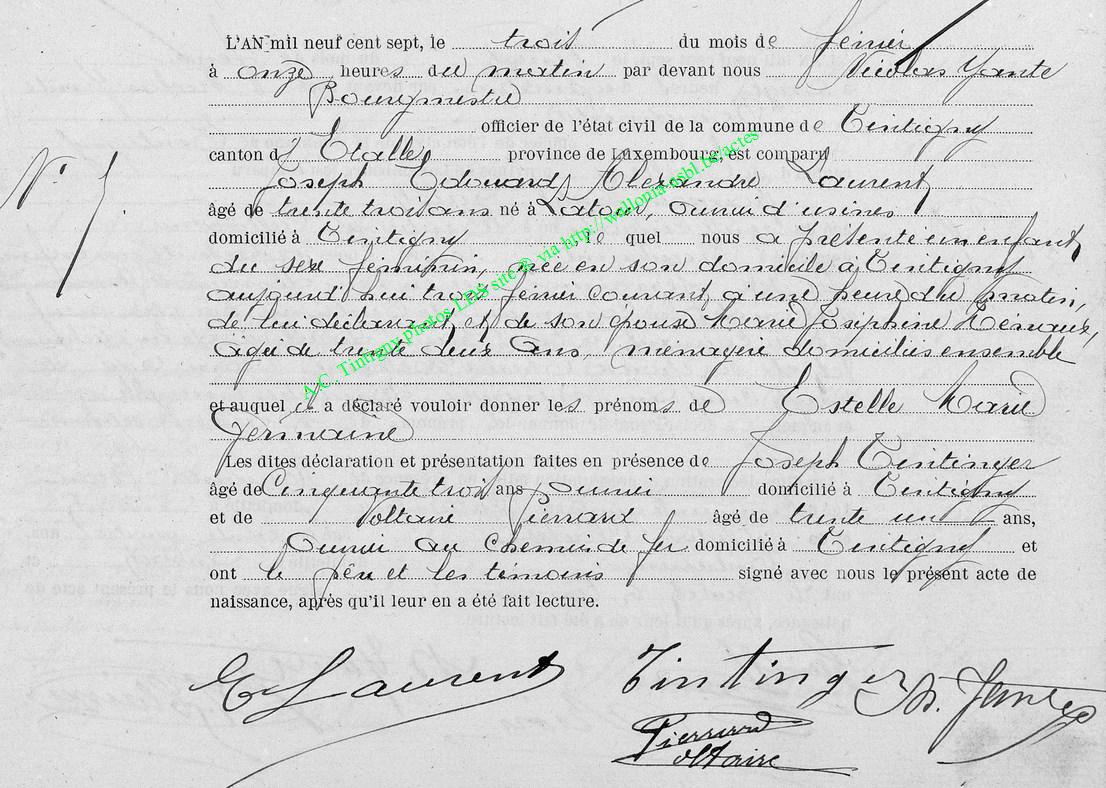 L'AN mil neuf cent sept, le trois du mois de février
à onze heures du matin par devant nous Nicolas Yante
Bourgmestre
officier de l'état civil de la commune de Tintigny
canton d'Etalle, province de Luxembourg, est comparu
N° 5.
Joseph Edouard Alexandre Laurent
âgé de trente trois ans né à Latour, ouvrier d'usines
domicilié à Tintigny, le quel nous a présenté un enfant
du sexe féminin, née en son domicile à Tintigny
aujourd'hui trois février courant, à une heure du matin,
de lui déclarant, et de son épouse Marie Joséphine
âgée de trente deux ans, ménagère domiciliés ensemble
et auquel il a déclaré vouloir donner les prénoms de Estelle Marie
Germaine
Les dites déclaration et présentation faites en présence de Joseph Tintinger
âgé de Cinquante trois ans ouvrier domicilié à Tintigny
et de Voltaire Pierrard âgé de trente un ans,
ouvrier au chemin de fer domicilié à Tintigny et
ont le père et les témoins signé avec nous le présent acte de
naissance, après qu'il leur en a été fait lecture.
E. Laurent Tintinger N. Yante
Pierrard
Voltaire
A.C. Tintigny photos LDS site ® via http://wallonia-asbl.be/actes